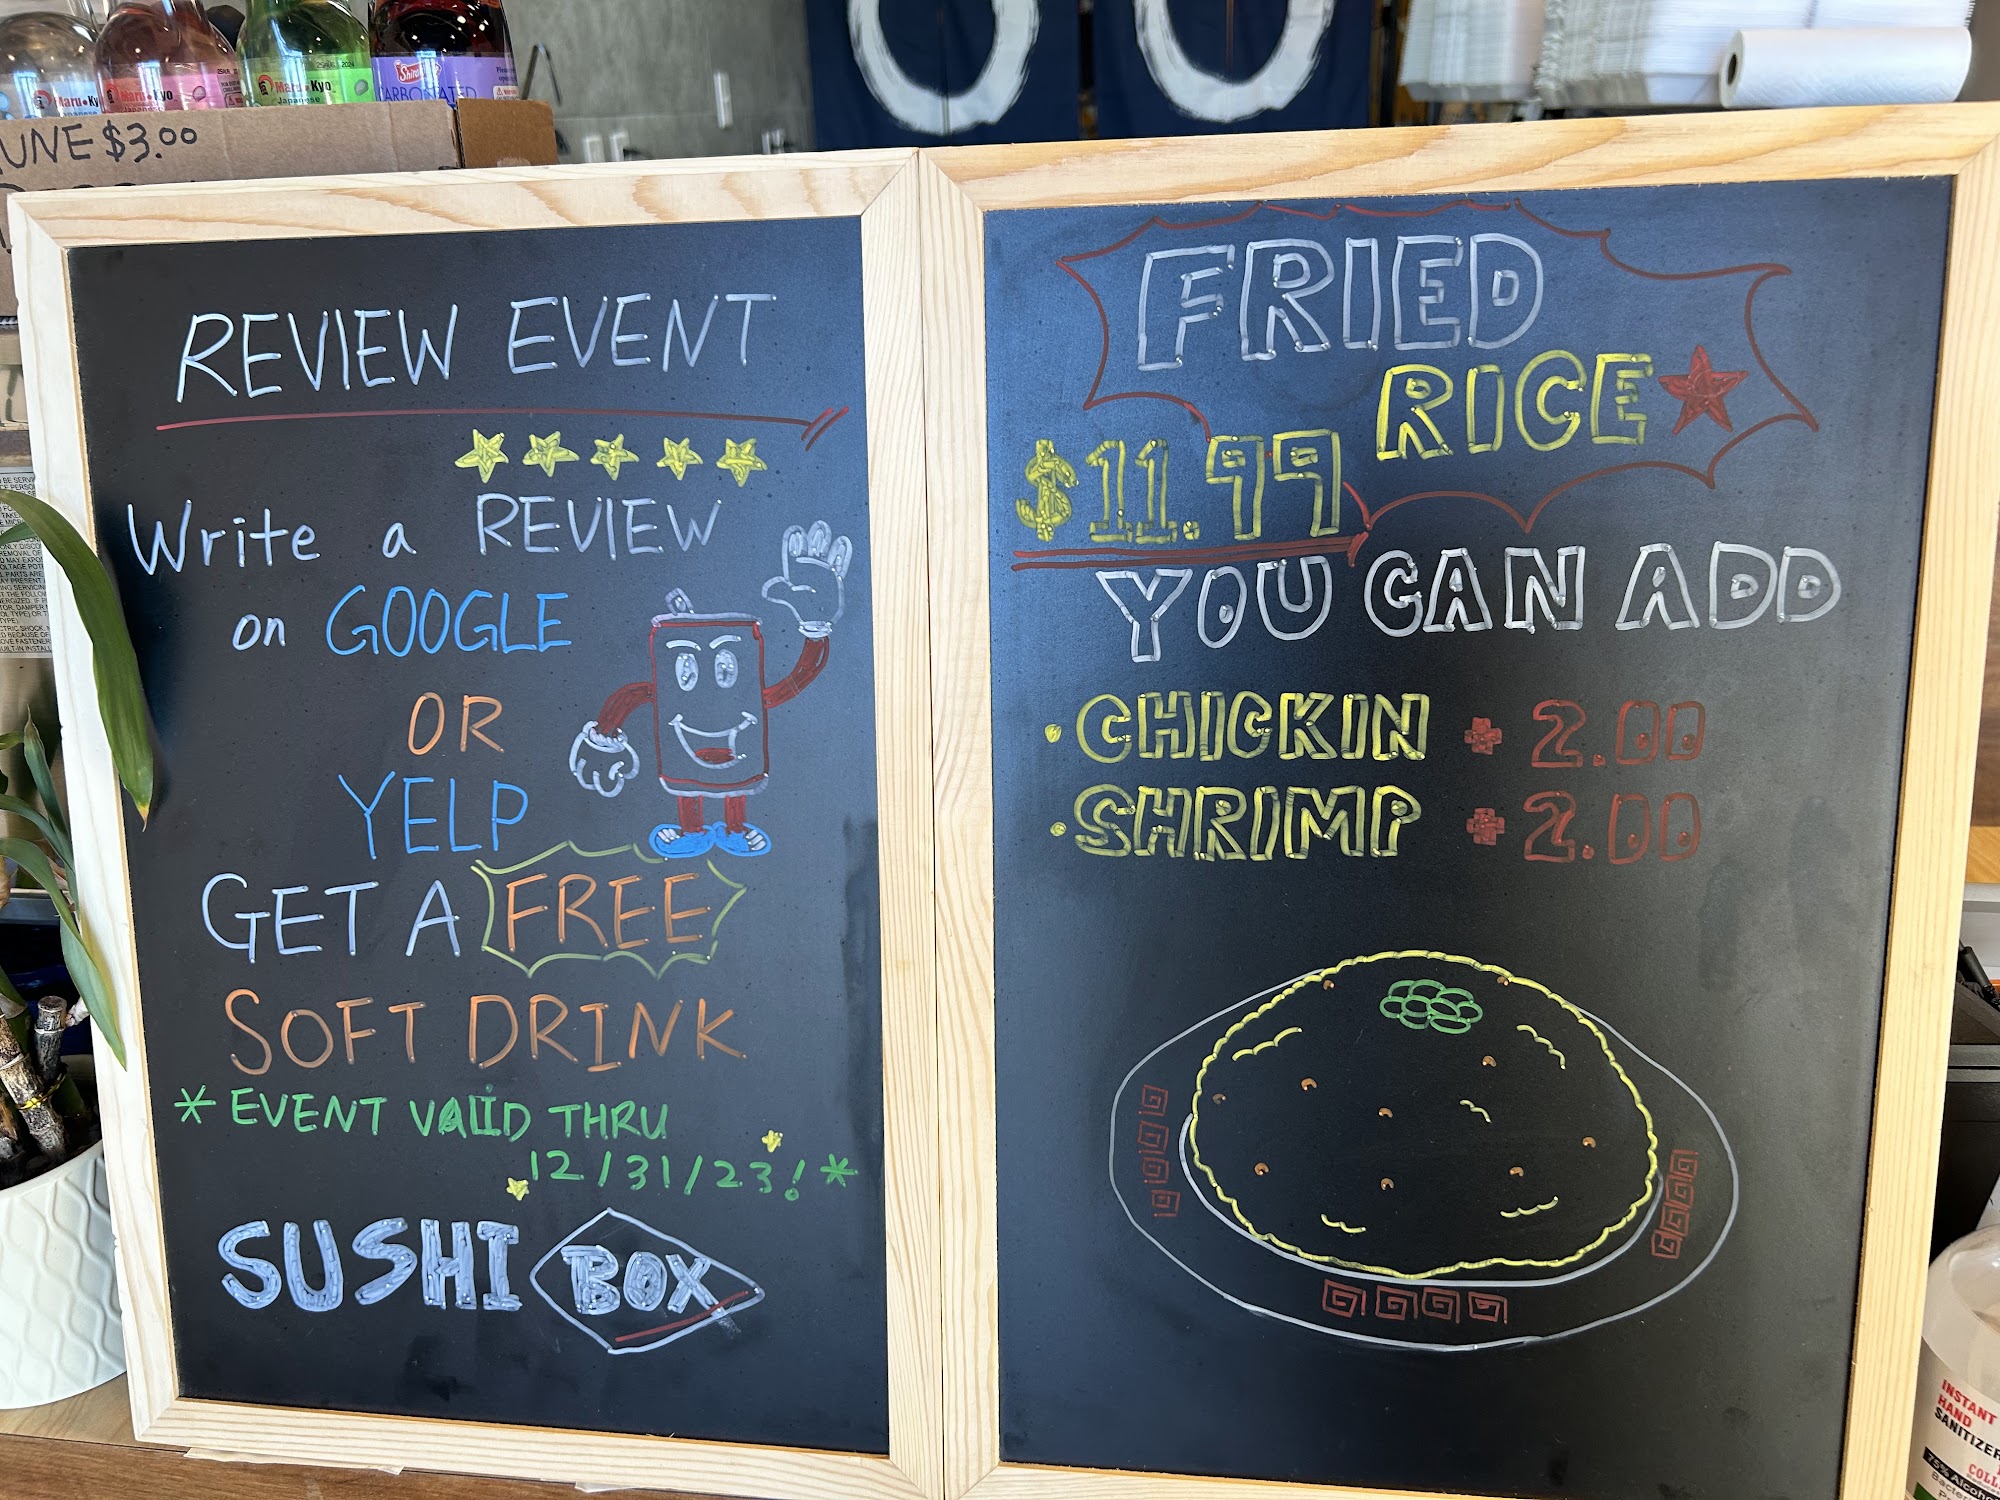 Maru•Ky
Maru•Kyo
Japanese
Shira
CARBONATED
UNE $3.00
REVIEW EVENT
Write a REVIEW
on GOOGLE
OR
YELP
GET A FREE
SOFT DRINK
* EVENT VALID THRU
12/31/23! *
SUSHI BOX
FRIED
RICE
$11.99
YOU CAN ADD
• CHICKIN + 2.00
• SHRIMP + 2.00
INSTANT
HAND
SANITIZE
75% Alcoho